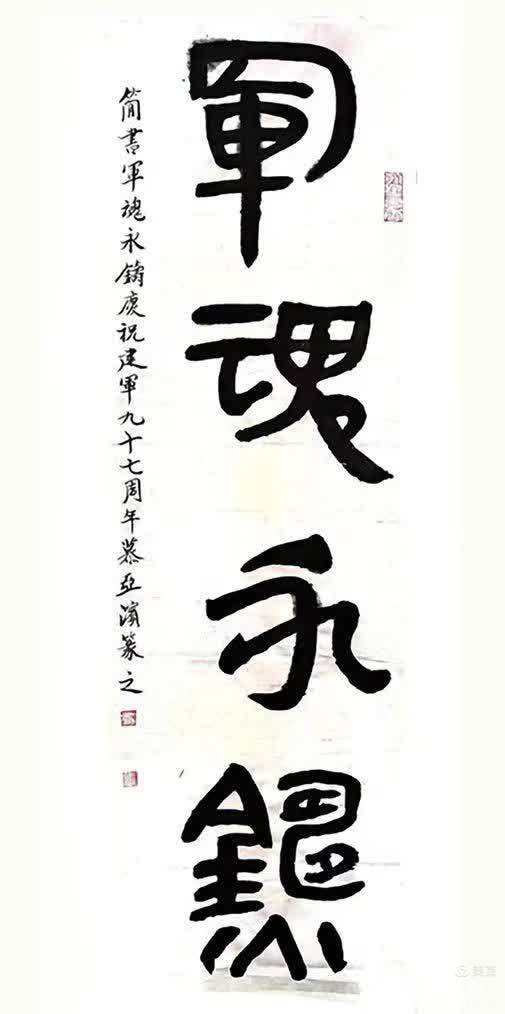 軍魂永鑄
簡書軍魂永鑄慶祝建軍九十七周年慕亞濱篆之